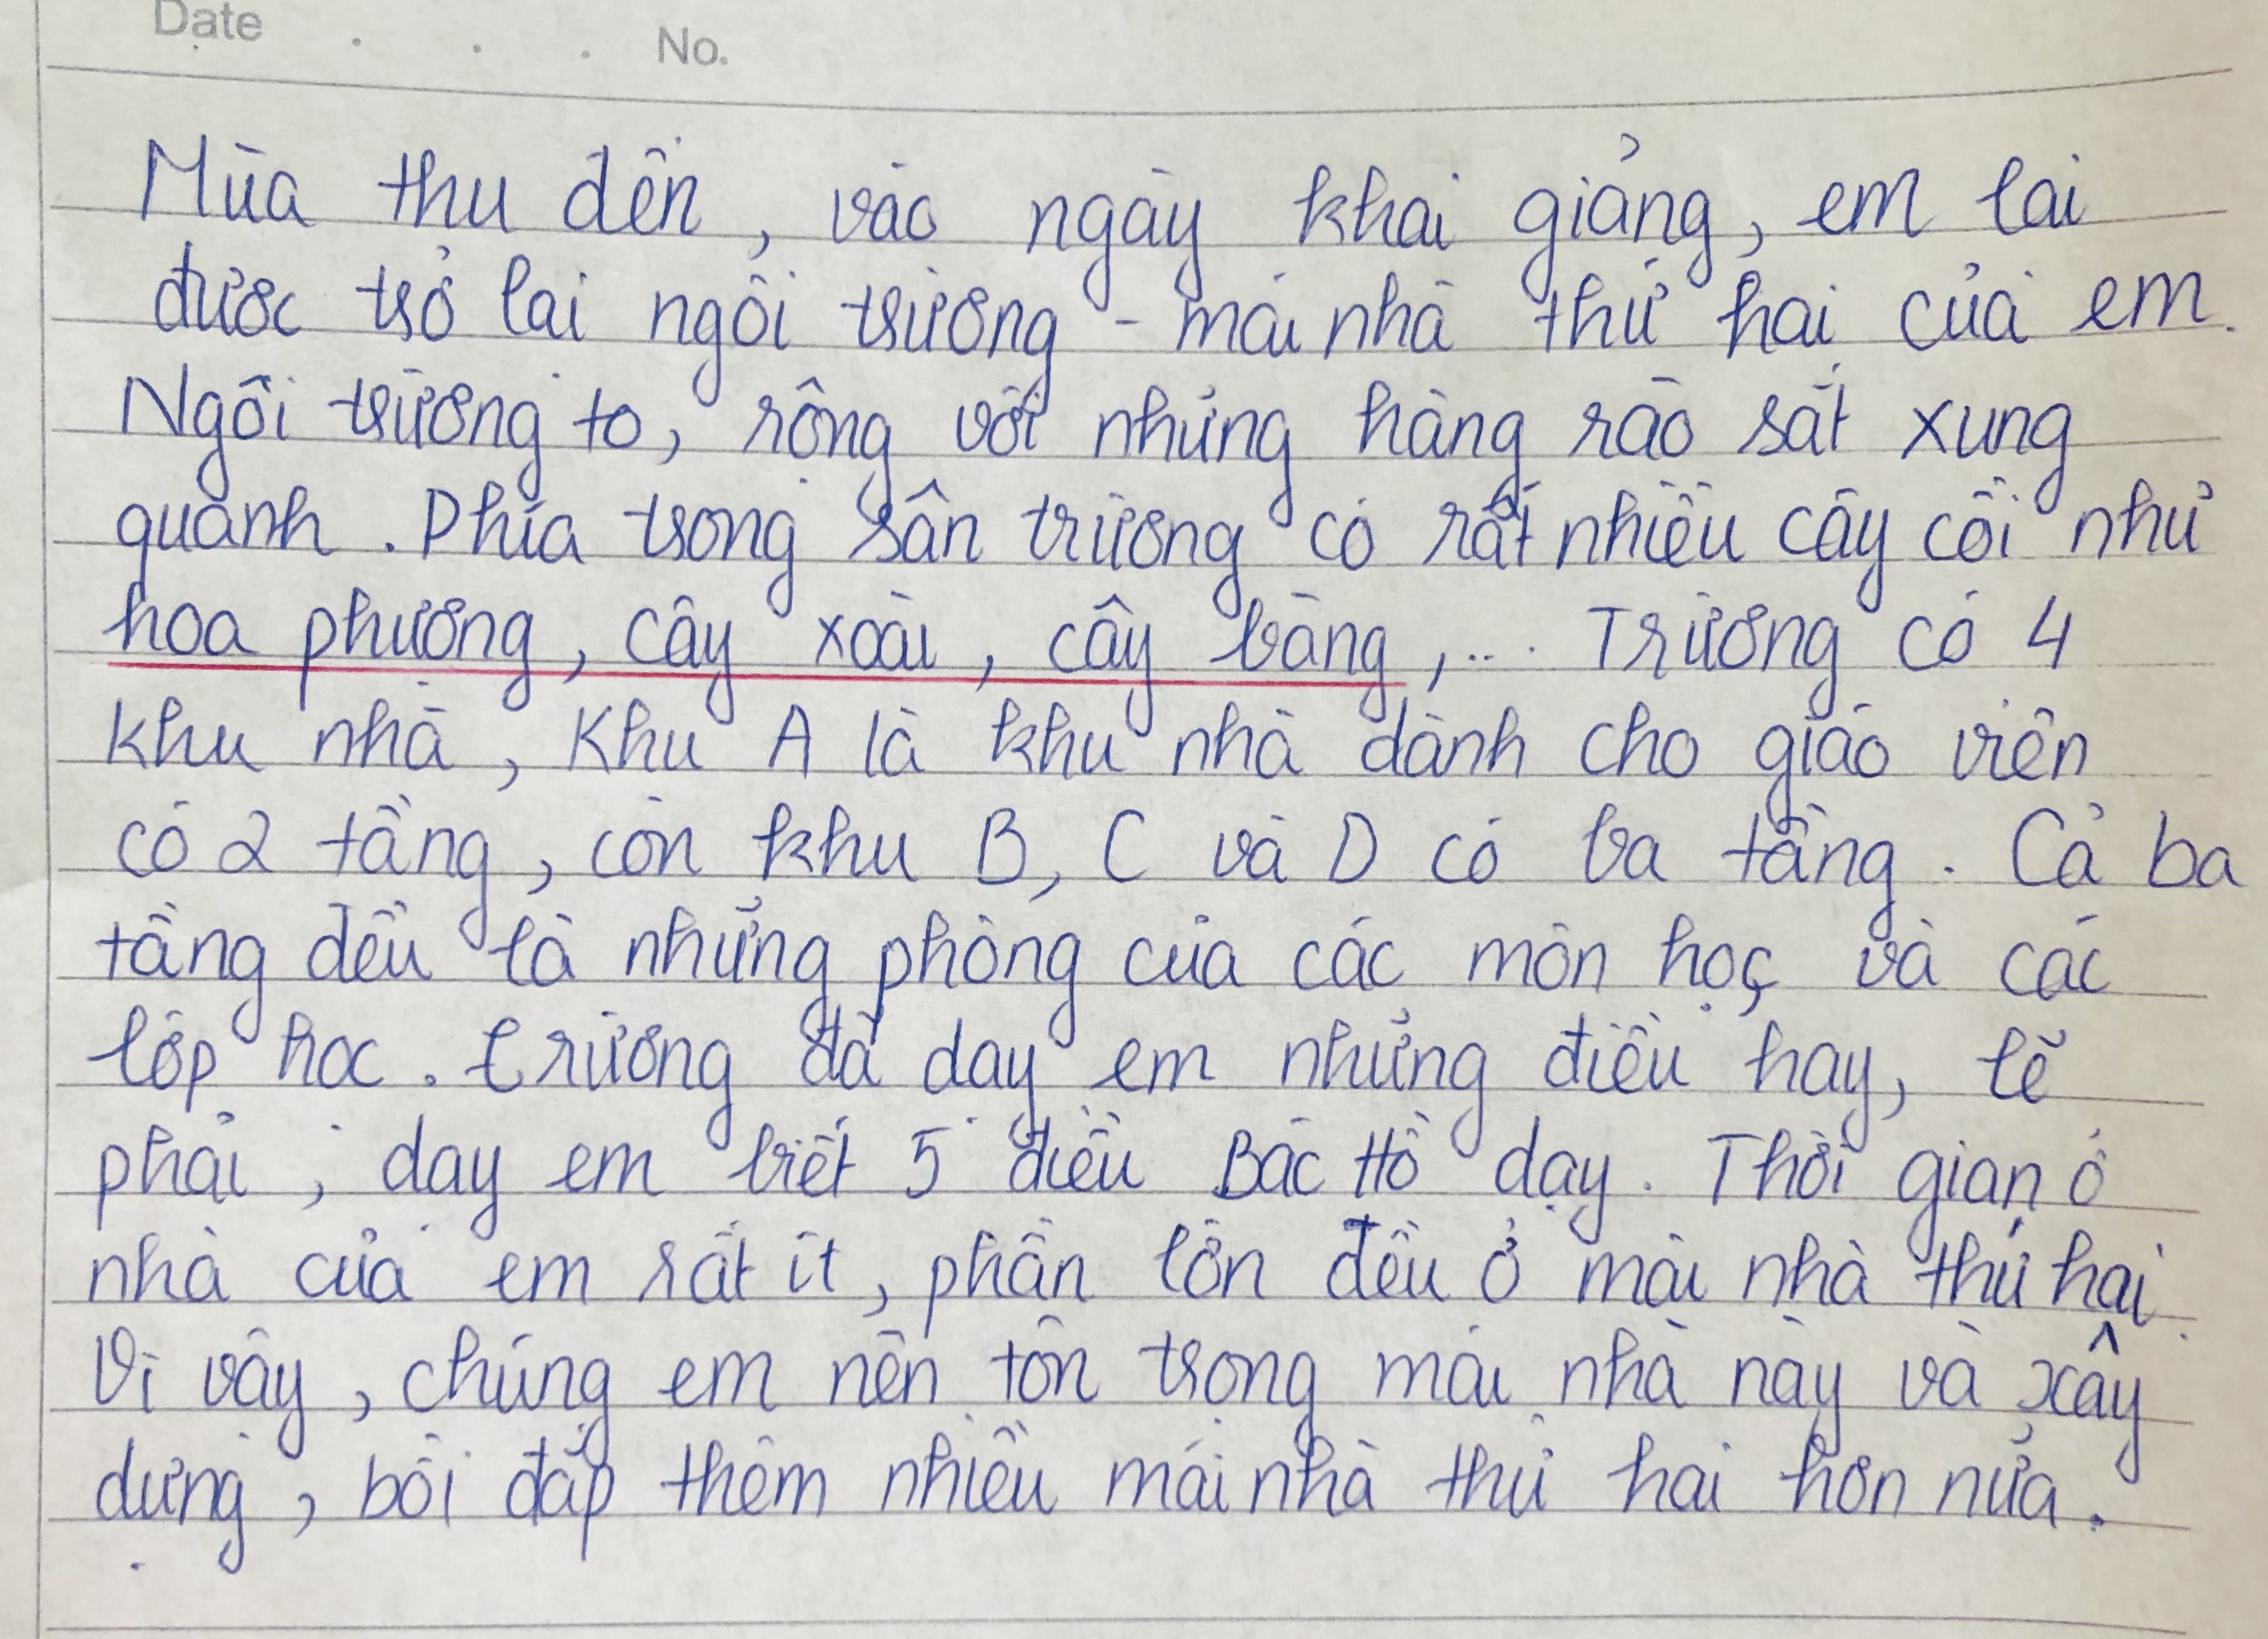 Date . . . No.
Mùa thu đến, vào ngày khai giảng, em lại
được trở lại ngôi trường - mái nhà thứ hai của em.
Ngôi trường to, rộng với những hàng rào sắt xung
quanh. Phía trong sân trường có rất nhiều cây cối như
hoa phượng, cây xoài, cây bàng,... Trường có 4
khu nhà, Khu A là khu nhà dành cho giáo viên
có 2 tầng, còn khu B, C và D có ba tầng. Cả ba
tầng đều là những phòng của các môn học và các
lớp học. trường đã dạy em những điều hay, lẽ
phải, dạy em biết 5 điều Bác Hồ dạy. Thời gian ở
nhà của em rất ít, phần lớn đều ở mái nhà thứ hai.
Vì vậy, chúng em nên tôn trọng mái nhà này và xây
dựng, bồi đắp thêm nhiều mái nhà thứ hai hơn nữa.